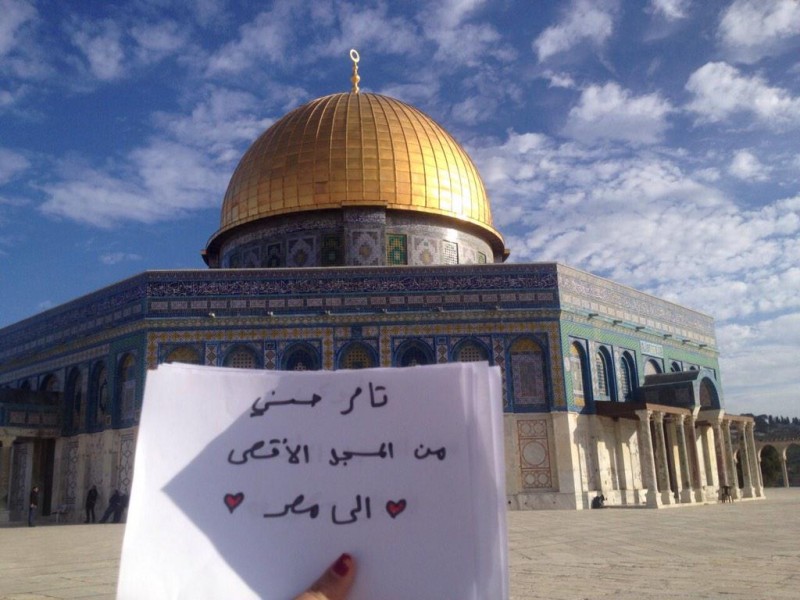 تامر حسني
من المسجد الأقصى
الى مصر